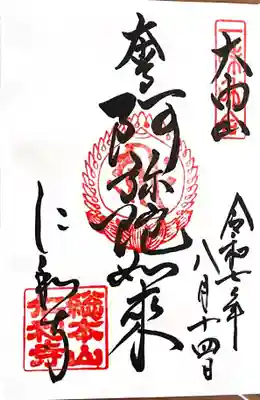 大内山
令和七年
八月十四日
阿弥陀如来
仁和寺
総本山
仁和寺